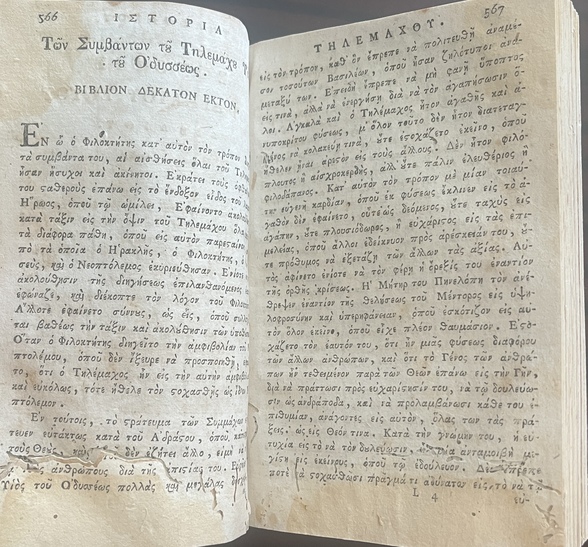 566
ΙΣΤΟΡΙΑ
Τῶν Συμβάντων τοῦ Τηλεμάχου Υ
τοῦ Ὀδυσσέως.
ΒΙΒΛΙΟΝ ΔΕΚΑΤΟΝ ΕΚΤΟΝ.
ΕΝ ᾧ ὁ Φιλοκτήτης κατ' αὐτὸν τὸν τρόπον
τὰ συμβάντα του, αἱ αἰσθήσεις ὅλαι τοῦ Τηλ
ἦσαν ἥσυχοι καὶ ἀκίνητοι. Ἐκράτει τοὺς ὀφθ
του σαθεροὺς ἐπάνω εἰς τὸ ἔνδοξον εἶδος τοῦ
Ἥρωος, ὁποῦ τῷ ὡμίλει. Ἐφαίνοντο
κατὰ τάξιν εἰς τὴν ὄψιν τοῦ Τηλεμάχου ὅλα
τὰ διάφορα πάθη, ὁποῦ εἰς αὐτὸν
πὸ τὰ ὁποῖα ὁ Ἡρακλῆς, ὁ Φιλοκτήτης, ὁ
σεὺς, καὶ ὁ Νεοπτόλεμος ἐκυριεύθησαν.
ἀκολούθησιν τῆς διηγήσεως
ἐφώναζε, καὶ διέκοπτε τὸν λόγον τοῦ Φιλοκ
Ἄλλοτε ἐφαίνετο σύννους, ὡς εἷς, ὁποῦ
ται βαθέως τὴν τάξιν καὶ ἀκολούθησιν τῶν
Ὅταν ὁ Φιλοκτήτης διηγεῖτο τὴν ἀμφιβολίαν τοῦ
πτολέμου, ὁποῦ δὲν ἤξευρε νὰ προσποιηθῇ,
το, ὅτι ὁ Τηλέμαχος ἦν εἰς τὴν αὐτὴν
καὶ εὐκόλως, τότε ἤθελε τὸν στοχασθῇς ὡς
πτόλεμον.
Ἐν τούτοις, τὸ στράτευμα τῶν Συμμάχων
τευεν εὐτάκτως κατὰ τοῦ Ἀδράσου, ὁποῦ
τοὺς Θεοὺς, καὶ δὲν ἐζήτει ἄλλο, εἰμὴ
ἀνθρώπους διὰ τῆς ἀπιστίας του.
Υἱὸς τοῦ Ὀδυσσέως πολλὰς καὶ μεγάλας
ΤΗΛΕΜΑΧΟΥ.
567
εἰς τὸν τρόπον, καθ' ὃν ἔπρεπε νὰ πολιτευθῇ ἀναμε-
σον τοσούτων Βασιλέων, ὁποῦ ἦσαν ζηλότυποι ἀνα-
μεταξύ των. Ἐπειδὴ ἔπρεπε νὰ μὴ φανῇ ὕποπτος
εἴς τινα, ἀλλὰ νὰ ἐνεργήσῃ διὰ νὰ τὸν ἀγαπήσωσιν ὅ-
λοι. Ἀγκαλὰ καὶ ὁ Τηλέμαχος ἦτον ἀγαθῆς καὶ ἀ-
νυποκρίτου φύσεως, μ' ὅλον τοῦτο δὲν ἦτον διατεταγ-
μένος νὰ κολακεύῃ τινὰ, οὔτε ἐσοχάζετο ἐκεῖνο, ὁποῦ
ἤθελεν εἶναι ἀρεστὸν εἰς τοὺς ἄλλους. Δὲν ἦτον φιλό-
πλουτος ἢ αἰσχροκερδὴς, ἀλλ' οὔτε πάλιν ἐλευθέριος ἢ
φιλοδάπανος. Κατ' αὐτὸν τὸν τρόπον μὲ μίαν τοιαύ-
την εὐγενῆ καρδίαν, ὁποῦ ἐκ φύσεως ἔκλινεν εἰς τὸ ἀ-
γαθὸν δὲν ἐφαίνετο, οὔτε ὡς δεόμενος, οὔτε ταχὺς εἰς
ἀγάπην, οὔτε πλουσιόδωρος, ἢ εὐχάριστος εἰς τὰς ἐπι-
μελείας, ὁποῦ ἄλλοι ἐδείκνυον πρὸς ἀρέσκειάν του, οὔ-
τε πρόθυμος νὰ ἐξετάζῃ τῶν ἄλλων τὰς ἀξίας. Αὐ-
τὸς ἀφίνετο ἐνίοτε νὰ τὸν φέρῃ ἡ ὄρεξίς του ἐναντίον
τῆς ὀρθῆς κρίσεως. Ἡ Μήτηρ του Πηνελόπη τὸν ἀνέ-
θρεψεν ἐναντίον τῆς θελήσεως τοῦ Μέντορος εἰς ὑψη-
λοφροσύνην καὶ ὑπερηφάνειαν, ὁποῦ ἐσκότιζον εἰς αὐ-
τὸν ὅλον ἐκεῖνο, ὁποῦ εἶχε πλέον θαυμάσιον. Ἐσο-
χάζετο τὸν ἑαυτόν του, ὅτι ἦν μιᾶς φύσεως διαφόρου
τῶν ἄλλων ἀνθρώπων, καὶ ὅτι τὸ Γένος τῶν ἀνθρώ-
πων ἦν τεθειμένον παρὰ τῶν Θεῶν ἐπάνω εἰς τὴν Γῆν,
διὰ νὰ πράττωσι πρὸς εὐχαρίστησίν του, νὰ τῷ δουλεύω-
σιν ὡς ἀνδράποδα, καὶ νὰ προλαμβάνωσι κάθε του ἐ-
πιθυμίαν, ἀνάγοντες εἰς αὐτὸν, ὅλας των τὰς πρά-
ξεις, ὡς εἰς Θεόν τινα. Κατὰ τὴν γνώμην του, ἡ εὐ-
τυχία εἰς τὸ νὰ τὸν δουλεύωσιν, ἦν μία ἀνταμοιβὴ με-
γίστη εἰς ἐκείνους, ὁποῦ τῷ ἐδούλευον. Δὲν ἔπρεπε
ποτὲ νὰ σοχασθῶσι πρᾶγμά τι ἀδύνατον εἰς τὸ νὰ τ
L 4
εὐ-